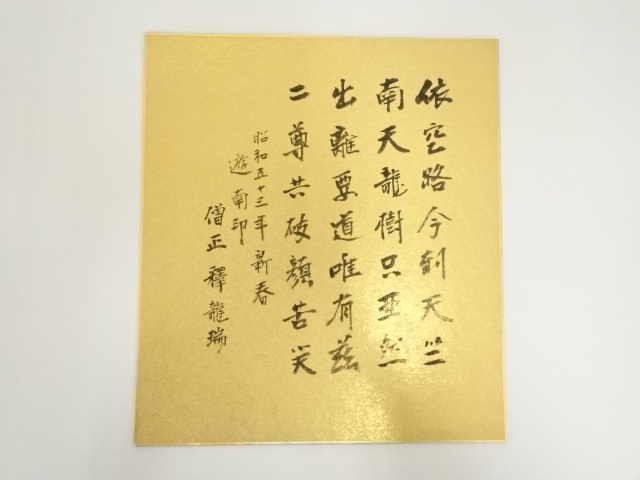 依空路今到天竺
南天龍樹只王然
出離要道唯有茲
二尊共破顔苦笑
昭和五十三年新春
遊南印
僧正釋龍瑞